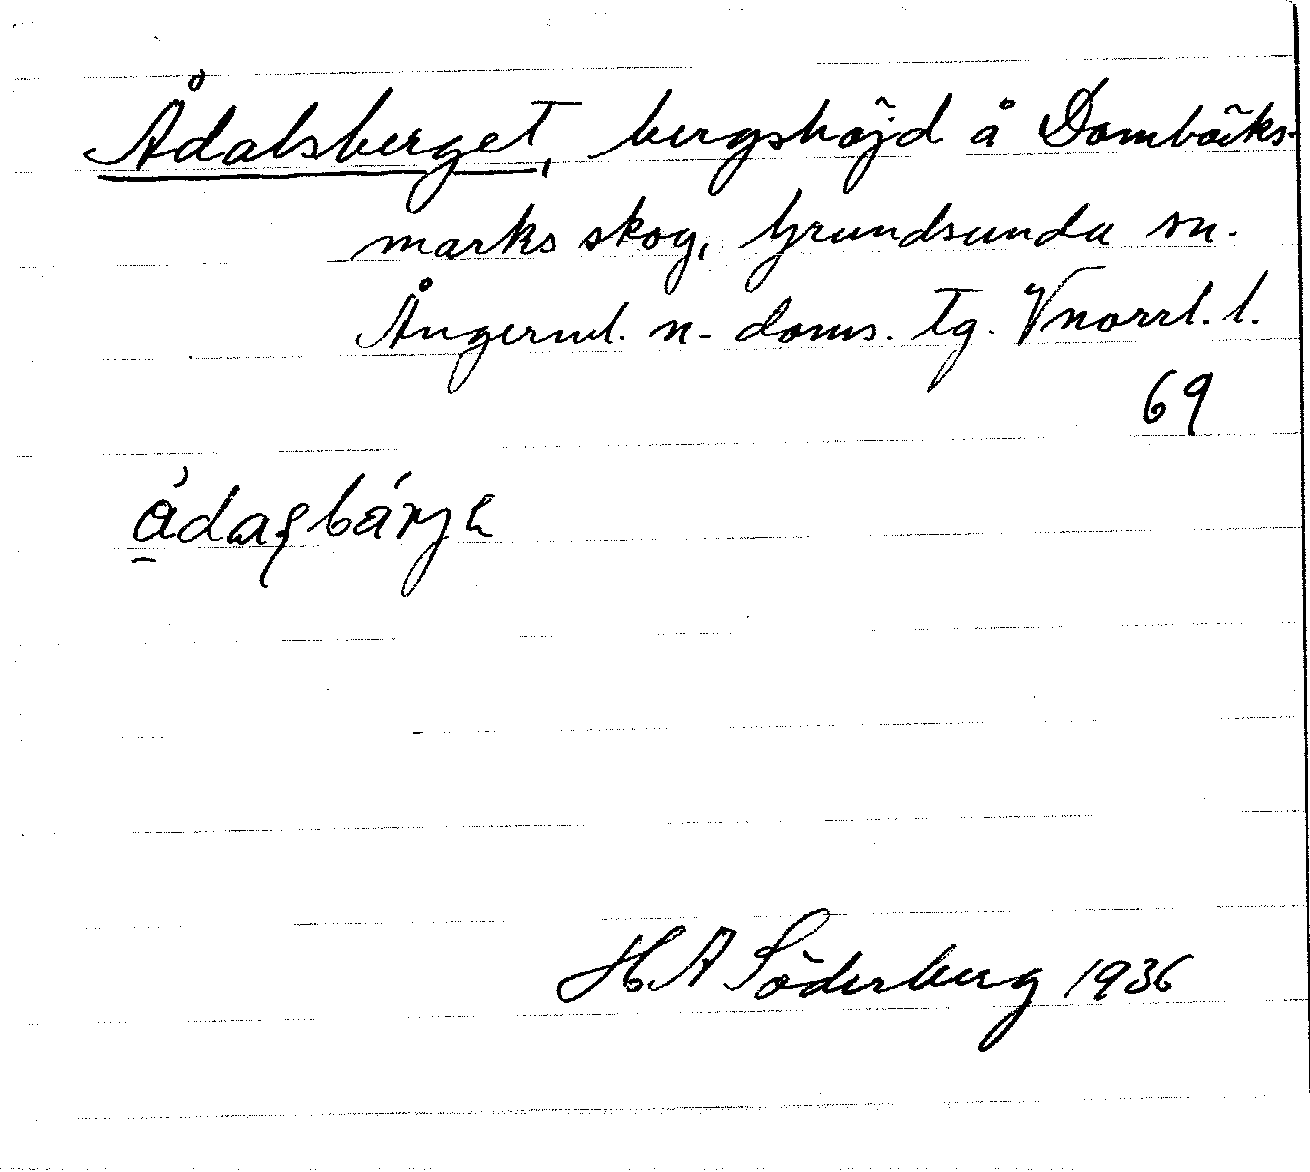 Ådalsberget, bergshöjd å Dombäks-
marks skog, Grundsunda sn.
Ångerml. n. doms. tg. Vnorrl. l.
69
H A Söderberg 1936